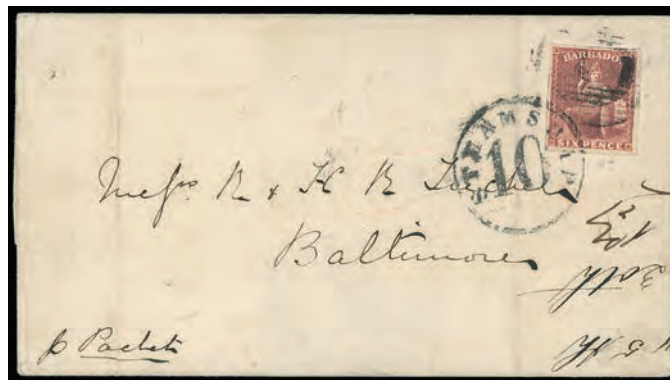 BARBADO
SIX PENCE
STEAMSHIP
10
Messrs. R & H R Tucker
Baltimore
p Packet